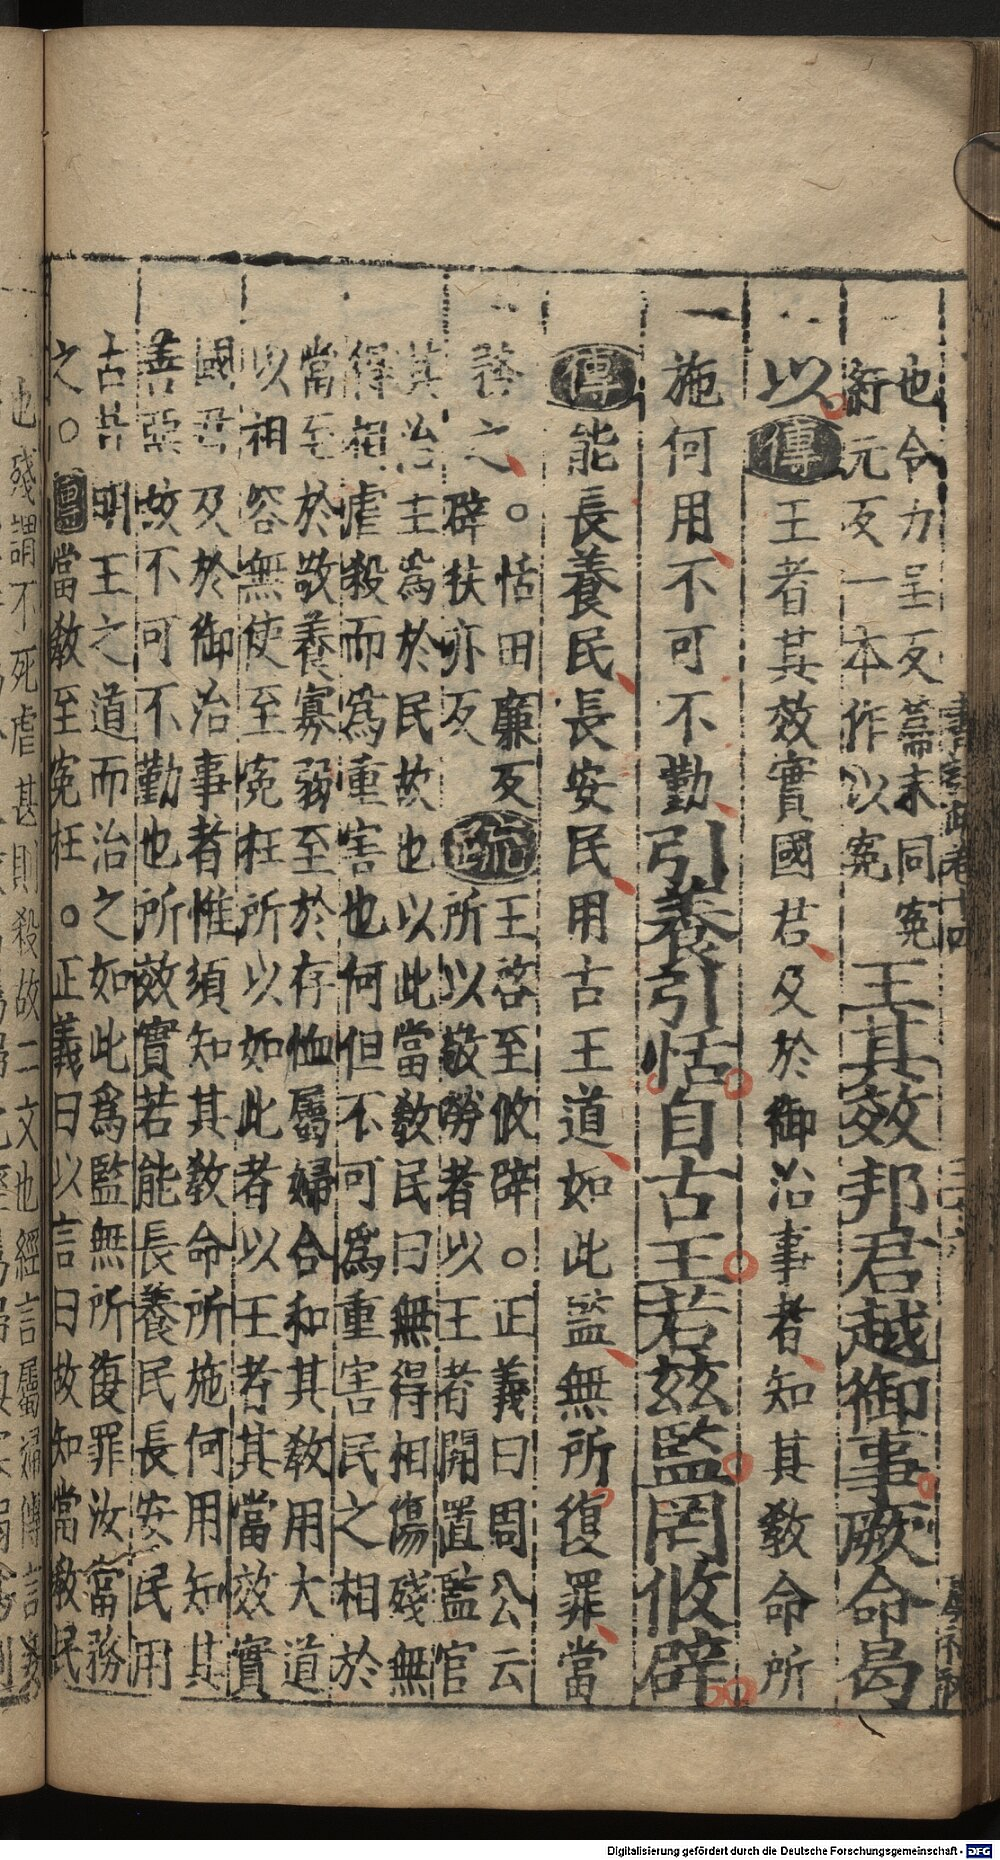 也令力呈反篇末同寃
紆元反一本作以寃
王其效邦君越御事厥命曷
以傳王者其效實國君及於御治事者知其教命所
施何用不可不勤引養引恬自古王若兹監罔攸辟
傳能長養民長安民用古王道如此監無所復罪當
務之。恬田廉反
辟扶亦反
疏王啓至攸辟。正義曰周公云
所以敬勞者以王者開置監官
其治主爲於民故也以此當敎民曰無得相傷殘無
得相虐殺而爲重害也何但不可爲重害民之相於
當至於敬養寡弱至於存恤屬婦合和其敎用大道
以相容無使至寃枉所以如此者以王者其當效實
國君及於御治事者惟須知其敎命所施何用知其
善惡故不可不勤也所效實若能長養民長安民用
古昔明王之道而治之如此爲監無所復罪汝當務
之。當敎至寃枉。正義曰以言曰故知當敎民
也殘謂不死虐甚則殺故二文也經言屬婦傳言
Digitalisierung gefördert durch die Deutsche Forschungsgemeinschaft - DFG